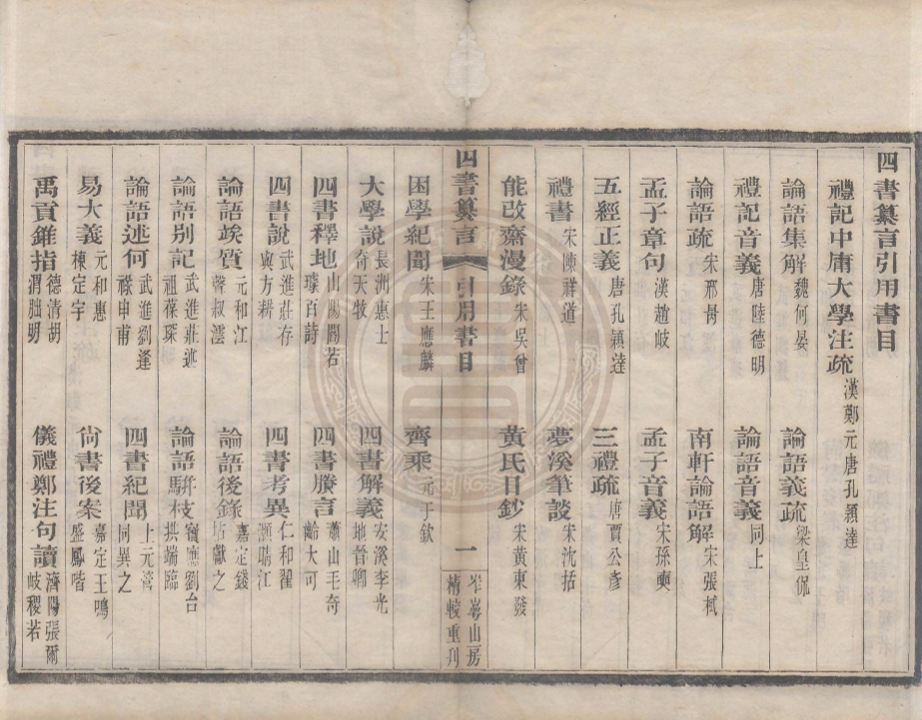 四書纂言引用書目
禮記中庸大學注疏 漢鄭元唐孔穎達
論語集解 魏何晏 論語義疏 梁皇侃
禮記音義 唐陸德明 論語音義 同上
論語疏 宋邢昺 南軒論語解 宋張栻
孟子章句 漢趙岐 孟子音義 宋孫奭
五經正義 唐孔穎達 三禮疏 唐賈公彥
禮書 宋陳祥道 夢溪筆談 宋沈括
能改齋漫錄 宋吳曾 黃氏日鈔 宋黃東發
四書纂言 引用書目 一 山房精較重刋
困學紀聞 宋王應麟 齊乘 元于欽
大學說 長洲惠士奇天牧 四書解義 安溪李光地晉卿
四書釋地 山陽閻若璩百詩 四書賸言 蕭山毛奇齡大可
四書說 武進莊存與方耕 四書考異 仁和翟灝晴江
論語竢質 元和江聲叔澐 論語後錄 嘉定錢坫獻之
論語別記 武進莊述祖葆琛 論語駢枝 寶應劉台拱端臨
論語述何 武進劉逢祿申甫 四書紀聞 上元管同異之
易大義 元和惠棟定宇 尙書後案 嘉定王鳴盛鳳喈
禹貢錐指 德清胡渭朏明 儀禮鄭注句讀 濟陽張爾岐稷若